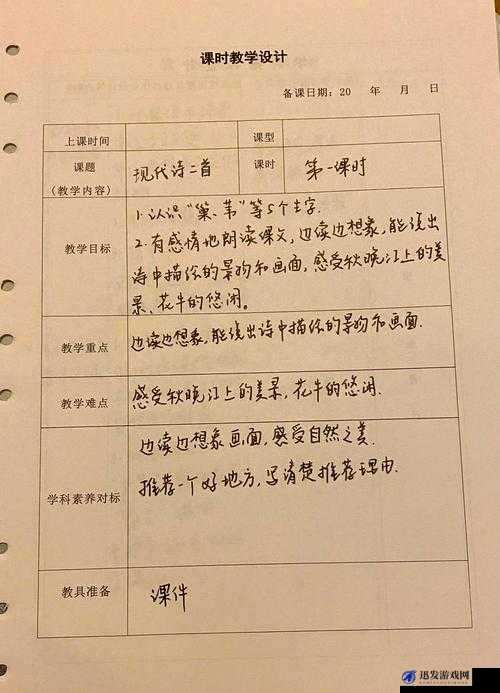 课时教学设计
备课日期：20 年 月 日
上课时间 课型
课题 （教学内容） 现代诗二首 课时 第一课时
教学目标
1.认识“巢、苇”等5个生字.
2.有感情地朗读课文,边读边想象,能说出
诗中描绘的景物和画面,感受秋晚江上的美
景、花牛的悠闲。
教学重点 边读边想象,能说出诗中描绘的景物和画面.
教学难点 感受秋晚江上的美景,花牛的悠闲.
学科素养对标
边读边想象画面,感受自然之美.
推荐一个好地方,写清楚推荐理由.
教具准备 课件
迅发游戏网